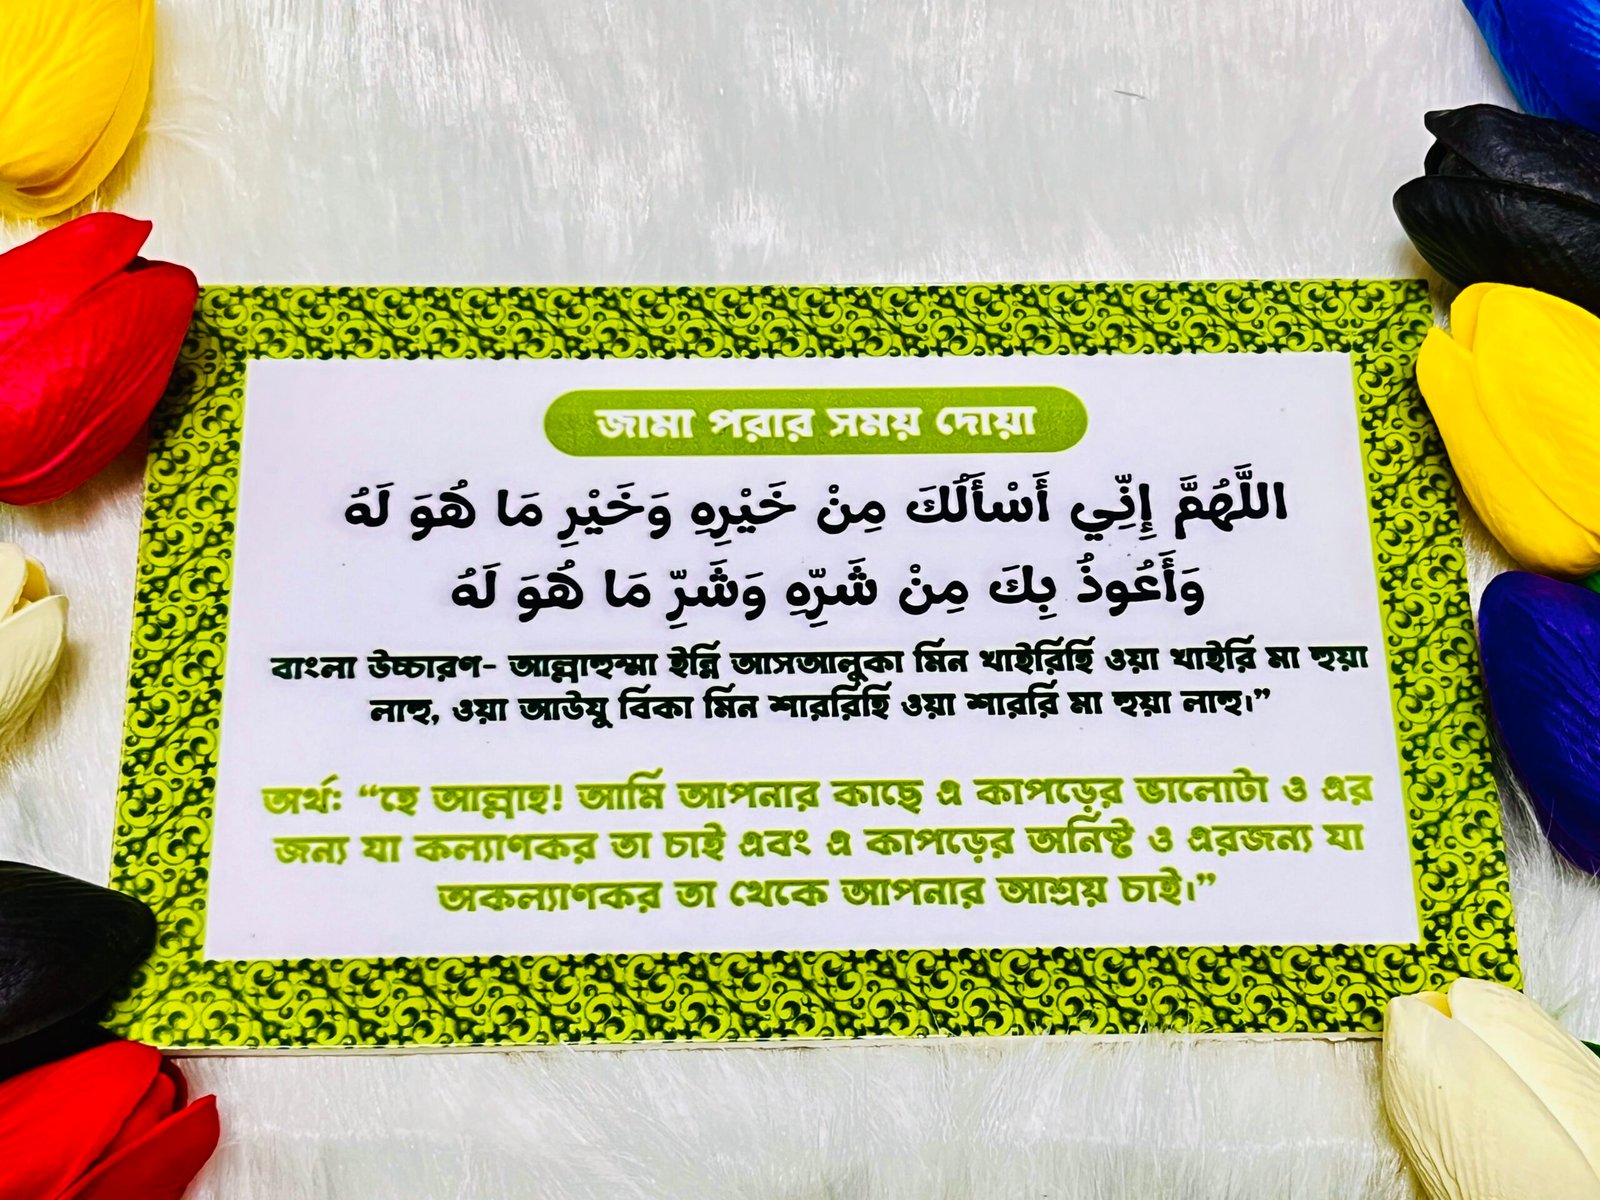 জামা পরার সময় দোয়া
اللَّهُمَّ إِنِّي أَسْأَلُكَ مِنْ خَيْرِهِ وَخَيْرِ مَا هُوَ لَهُ
وَأَعُوذُ بِكَ مِنْ شَرِّهِ وَشَرِّ مَا هُوَ لَهُ
বাংলা উচ্চারণ- আল্লাহুম্মা ইন্নি আসআলুকা মিন খাইরিহি ওয়া খাইরি মা হুয়া
লাহু, ওয়া আউযু বিকা মিন শাররিহি ওয়া শাররি মা হুয়া লাহু।”
অর্থ: “হে আল্লাহ! আমি আপনার কাছে এ কাপড়ের ভালোটা ও এর
জন্য যা কল্যাণকর তা চাই এবং এ কাপড়ের অনিষ্ট ও এরজন্য যা
অকল্যাণকর তা থেকে আপনার আশ্রয় চাই।”